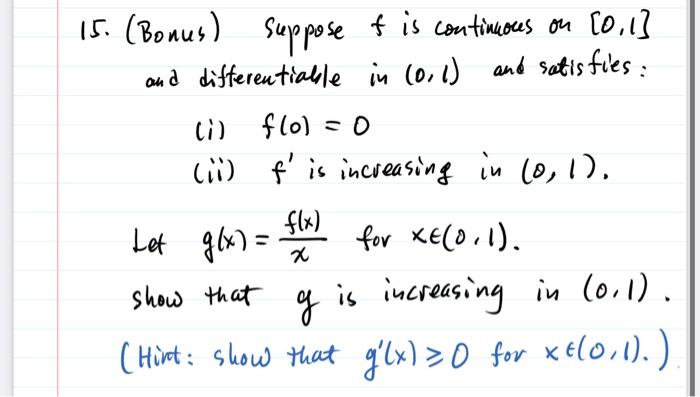 15. (Bonus) Suppose f is continuous on [0,1]
and differentiable in (0,1) and satisfies:
(i) f(0) = 0
(ii) f' is increasing in (0,1).
Let g(x) = f(x)/x for x∈(0,1).
show that g is increasing in (0,1).
(Hint: show that g'(x) ≥ 0 for x∈(0,1).)